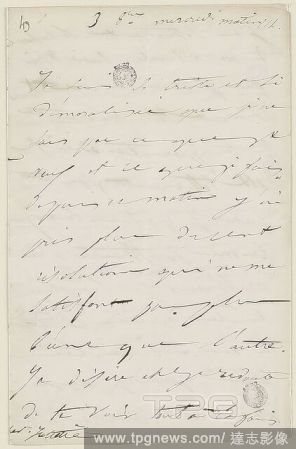 3 8bre mercredi matin
Je suis si triste et si
démoralisée que je ne
sais pas ce que je
et ce que je fais
Depuis ce matin j'ai
pris plus de cent
résolutions qui ne me
satisfont pas plus
l'une que l'autre.
Je désire et je redoute
de te voir tout à la fois
TPG
www.tpgnews.com / 達志影像